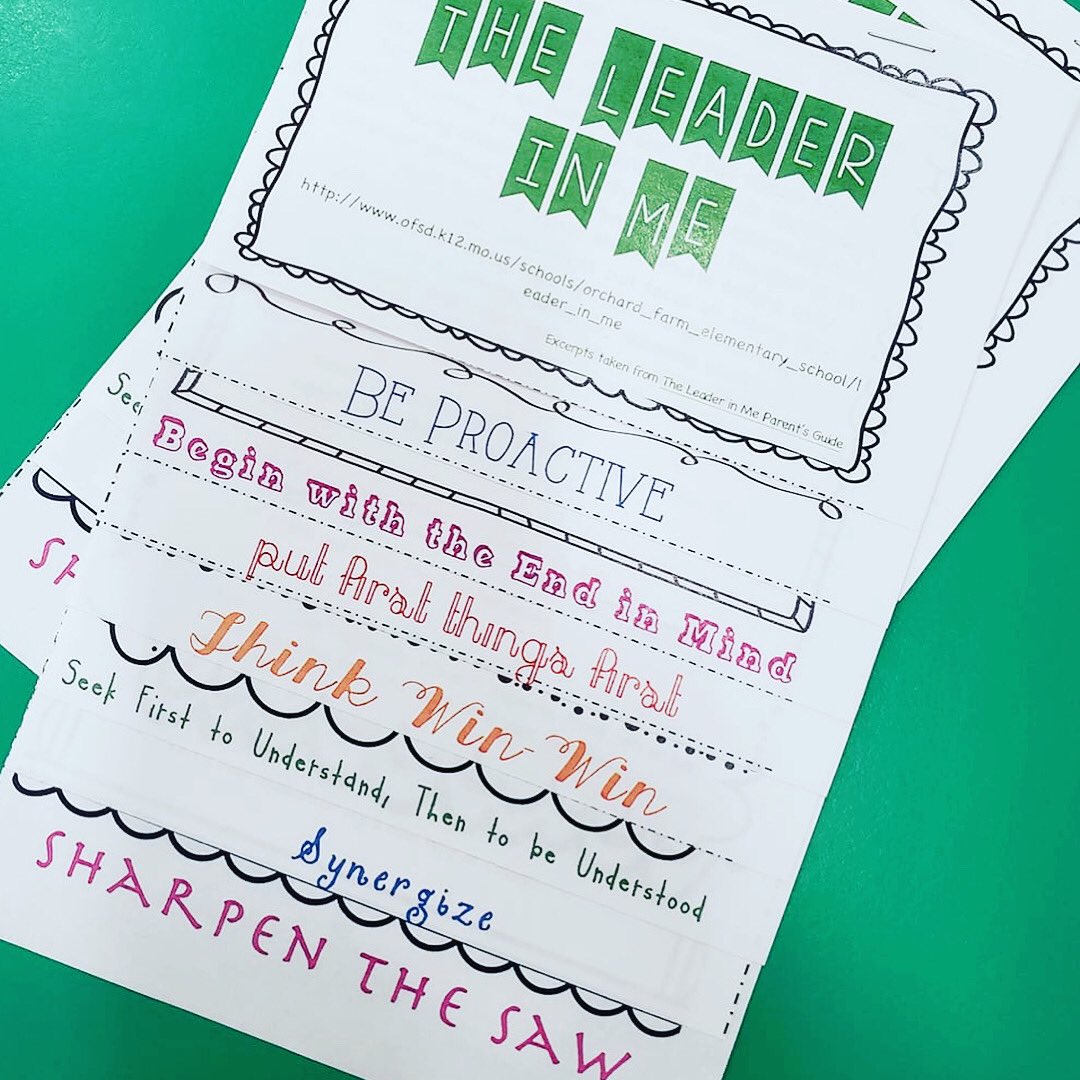 THE LEADER
IN ME
http://www.ofsd.k12.mo.us/schools/orchard_farm_elementary_school/l
eader_in_me
Excerpts taken from The Leader in Me Parent's Guide
BE PROACTIVE
Begin with the End in Mind
put first things first
Think Win-Win
Seek First to Understand, Then to be Understood
Synergize
SHARPEN THE SAW
See
SH